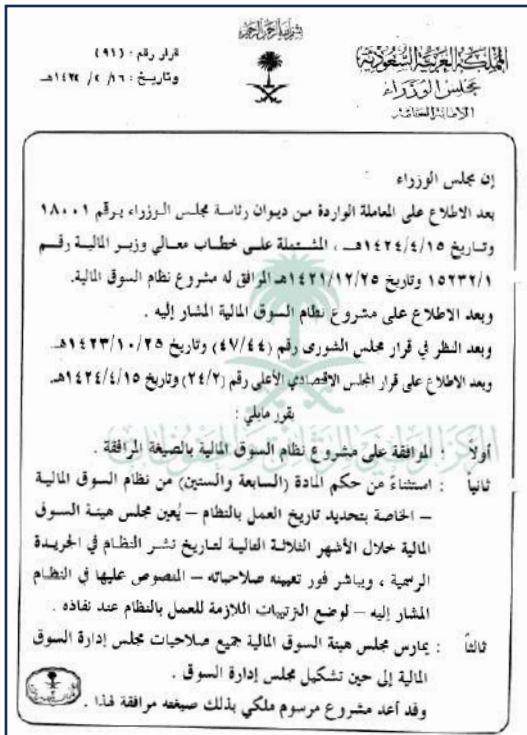 بسم الله الرحمن الرحيم
المملكة العربية السعودية
مجلس الوزراء
الأمانة العامة
قرار رقم : (٩١)
وتاريخ : ١٦/ ٢/ ١٤٢٤هـ
إن مجلس الوزراء
بعد الاطلاع على المعاملة الواردة من ديوان رئاسة مجلس الوزراء برقم ١٨٠٠١
وتاريخ ١٤٢٤/٤/١٥هـ ، المشتملة على خطاب معالي وزير المالية رقم
١٥٢٣٢/١ وتاريخ ١٤٢١/١٢/٢٥هـ المرافق له مشروع نظام السوق المالية.
وبعد الاطلاع على مشروع نظام السوق المالية المشار إليه .
وبعد النظر في قرار مجلس الشورى رقم (٤٧/٤٤) وتاريخ ١٤٢٣/١٠/٢٥هـ.
وبعد الاطلاع على قرار المجلس الاقتصادي الأعلى رقم (٢٤/٢) وتاريخ ١٤٢٤/٤/١٥هـ.
يقرر مايلي :
المركز الوطني للوثائق والمحفوظات
أولاً : الموافقة على مشروع نظام السوق المالية بالصيغة المرافقة .
ثانياً : استثناءً من حكم المادة (السابعة والستين) من نظام السوق المالية
– الخاصة بتحديد تاريخ العمل بالنظام – يُعين مجلس هيئة السوق
المالية خلال الأشهر الثلاثة التالية لتاريخ نشر النظام في الجريدة
الرسمية ، ويباشر فور تعيينه صلاحياته – المنصوص عليها في النظام
المشار إليه – لوضع الترتيبات اللازمة للعمل بالنظام عند نفاذه .
ثالثاً : يمارس مجلس هيئة السوق المالية جميع صلاحيات مجلس إدارة السوق
المالية إلى حين تشكيل مجلس إدارة السوق .
وقد أعد مشروع مرسوم ملكي بذلك صيغته مرافقة لهذا .